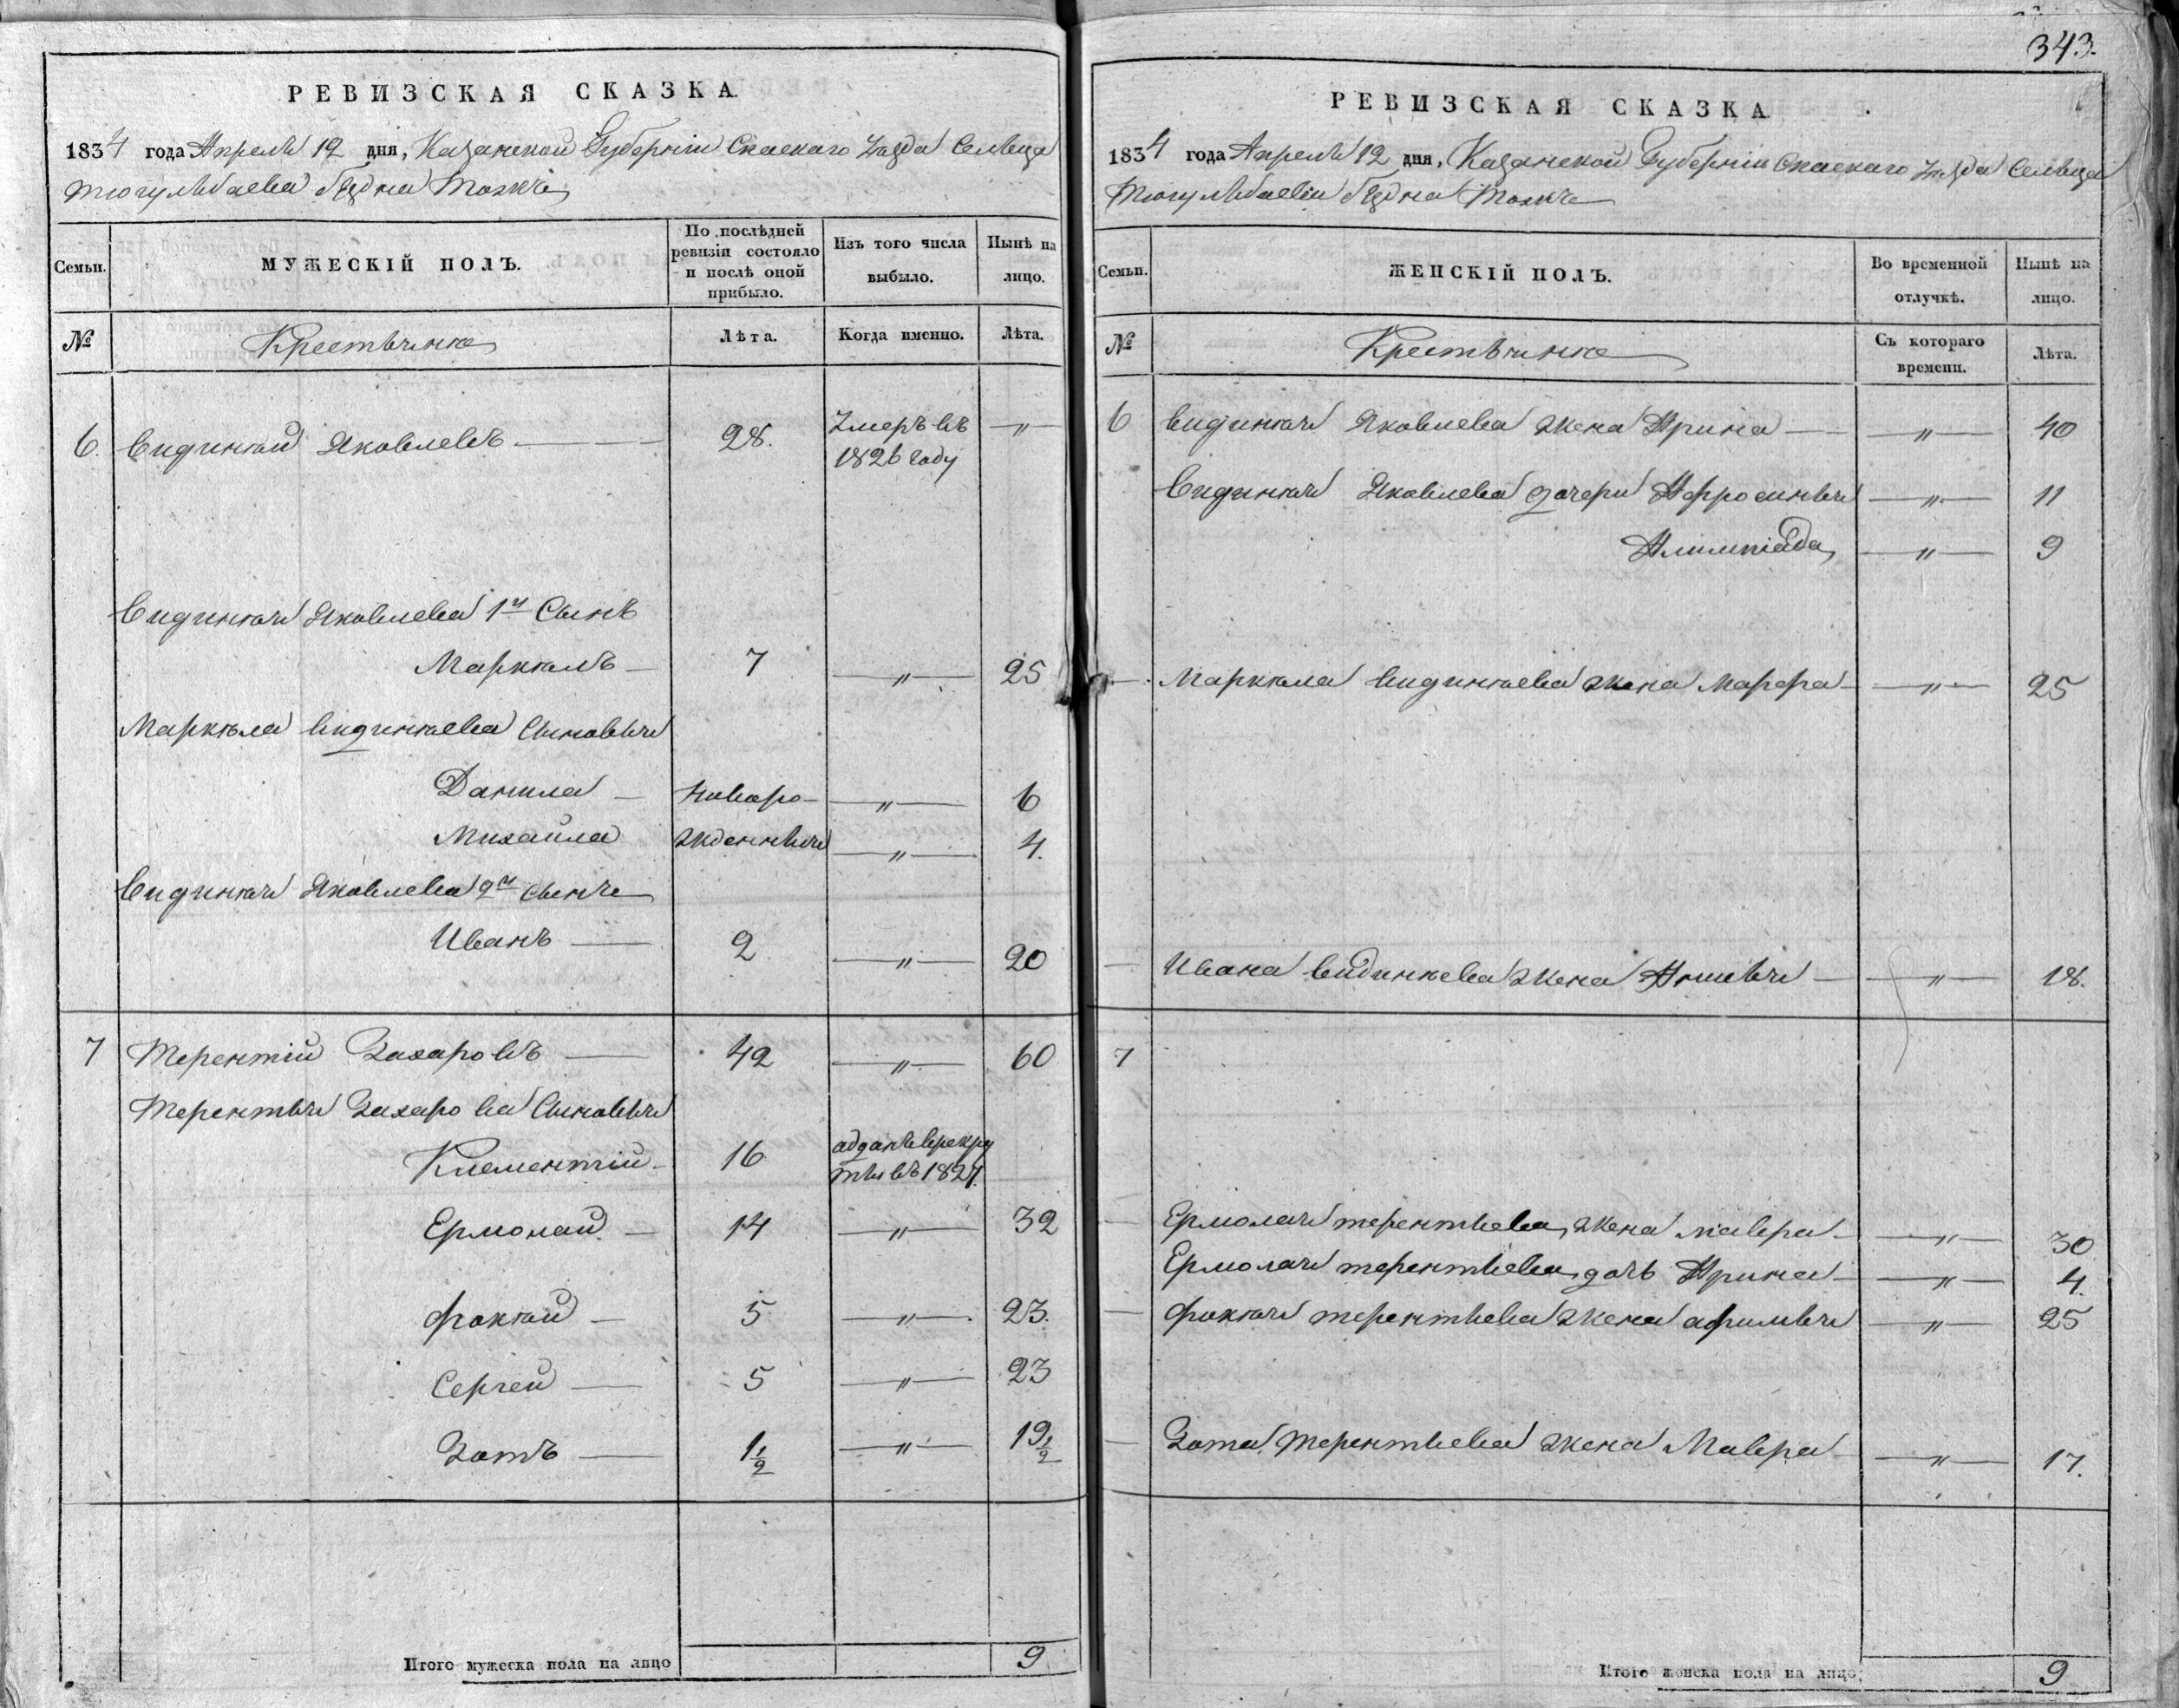 РЕВИЗСКАЯ СКАЗКА.
1834 года Апреля 12 дня, Казанской Губернiи Спаскаго Уезда Сельца
Тюгульбаева бѣдна тожъ
Семьи.
МУЖЕСКІЙ ПОЛЪ.
По послѣдней ревизіи состояло и послѣ оной прибыло.
Изъ того числа выбыло.
Нынѣ на лицо.
№
Крестьяне
Лѣта.
Когда именно.
Лѣта.
6. Яковлевъ 28. Умеръ въ 1826 году „
Яковлева 1й Сынъ
Маркелъ 7 „ 25
Маркела Сыновья
Данила новоро- „ 6
Михайла жденныя „ 4.
Яковлева 2й сынъ
Иванъ 2 „ 20
7 Терентій Захаровъ 42 „ 60
Терентья Захарова Сыновья
Клементій 16 адданъ врекру
ты въ 1827.
Ермолай 14 „ 32
Фоктей 5 „ 23.
Сергей 5 „ 23
Зотъ 1 1/2 „ 19 1/2
Итого мужеска пола на лицо 9
343.
РЕВИЗСКАЯ СКАЗКА.
1834 года Апреля 12 дня, Казанской Губернiи Спаскаго Уезда Сельца
Тюгульбаева бѣдна тожъ
Семьи.
ЖЕНСКІЙ ПОЛЪ.
Во временной отлучкѣ.
Нынѣ на лицо.
№
Крестьяне
Съ котораго времени.
Лѣта.
6 Яковлева жена Арина „ 40
Яковлева дочери Афросинья „ 11
Алимпіада „ 9
Маркела жена Марфа „ 25
Ивана жена Анисья „ 18.
7
Ермолая терентьева жена мавра „ 30
Ермолая терентьева дочь Арина „ 4.
Фоктея терентьева жена афимья „ 25
Зота Терентьева жена Мавра „ 17.
Итого женска пола на лицо 9